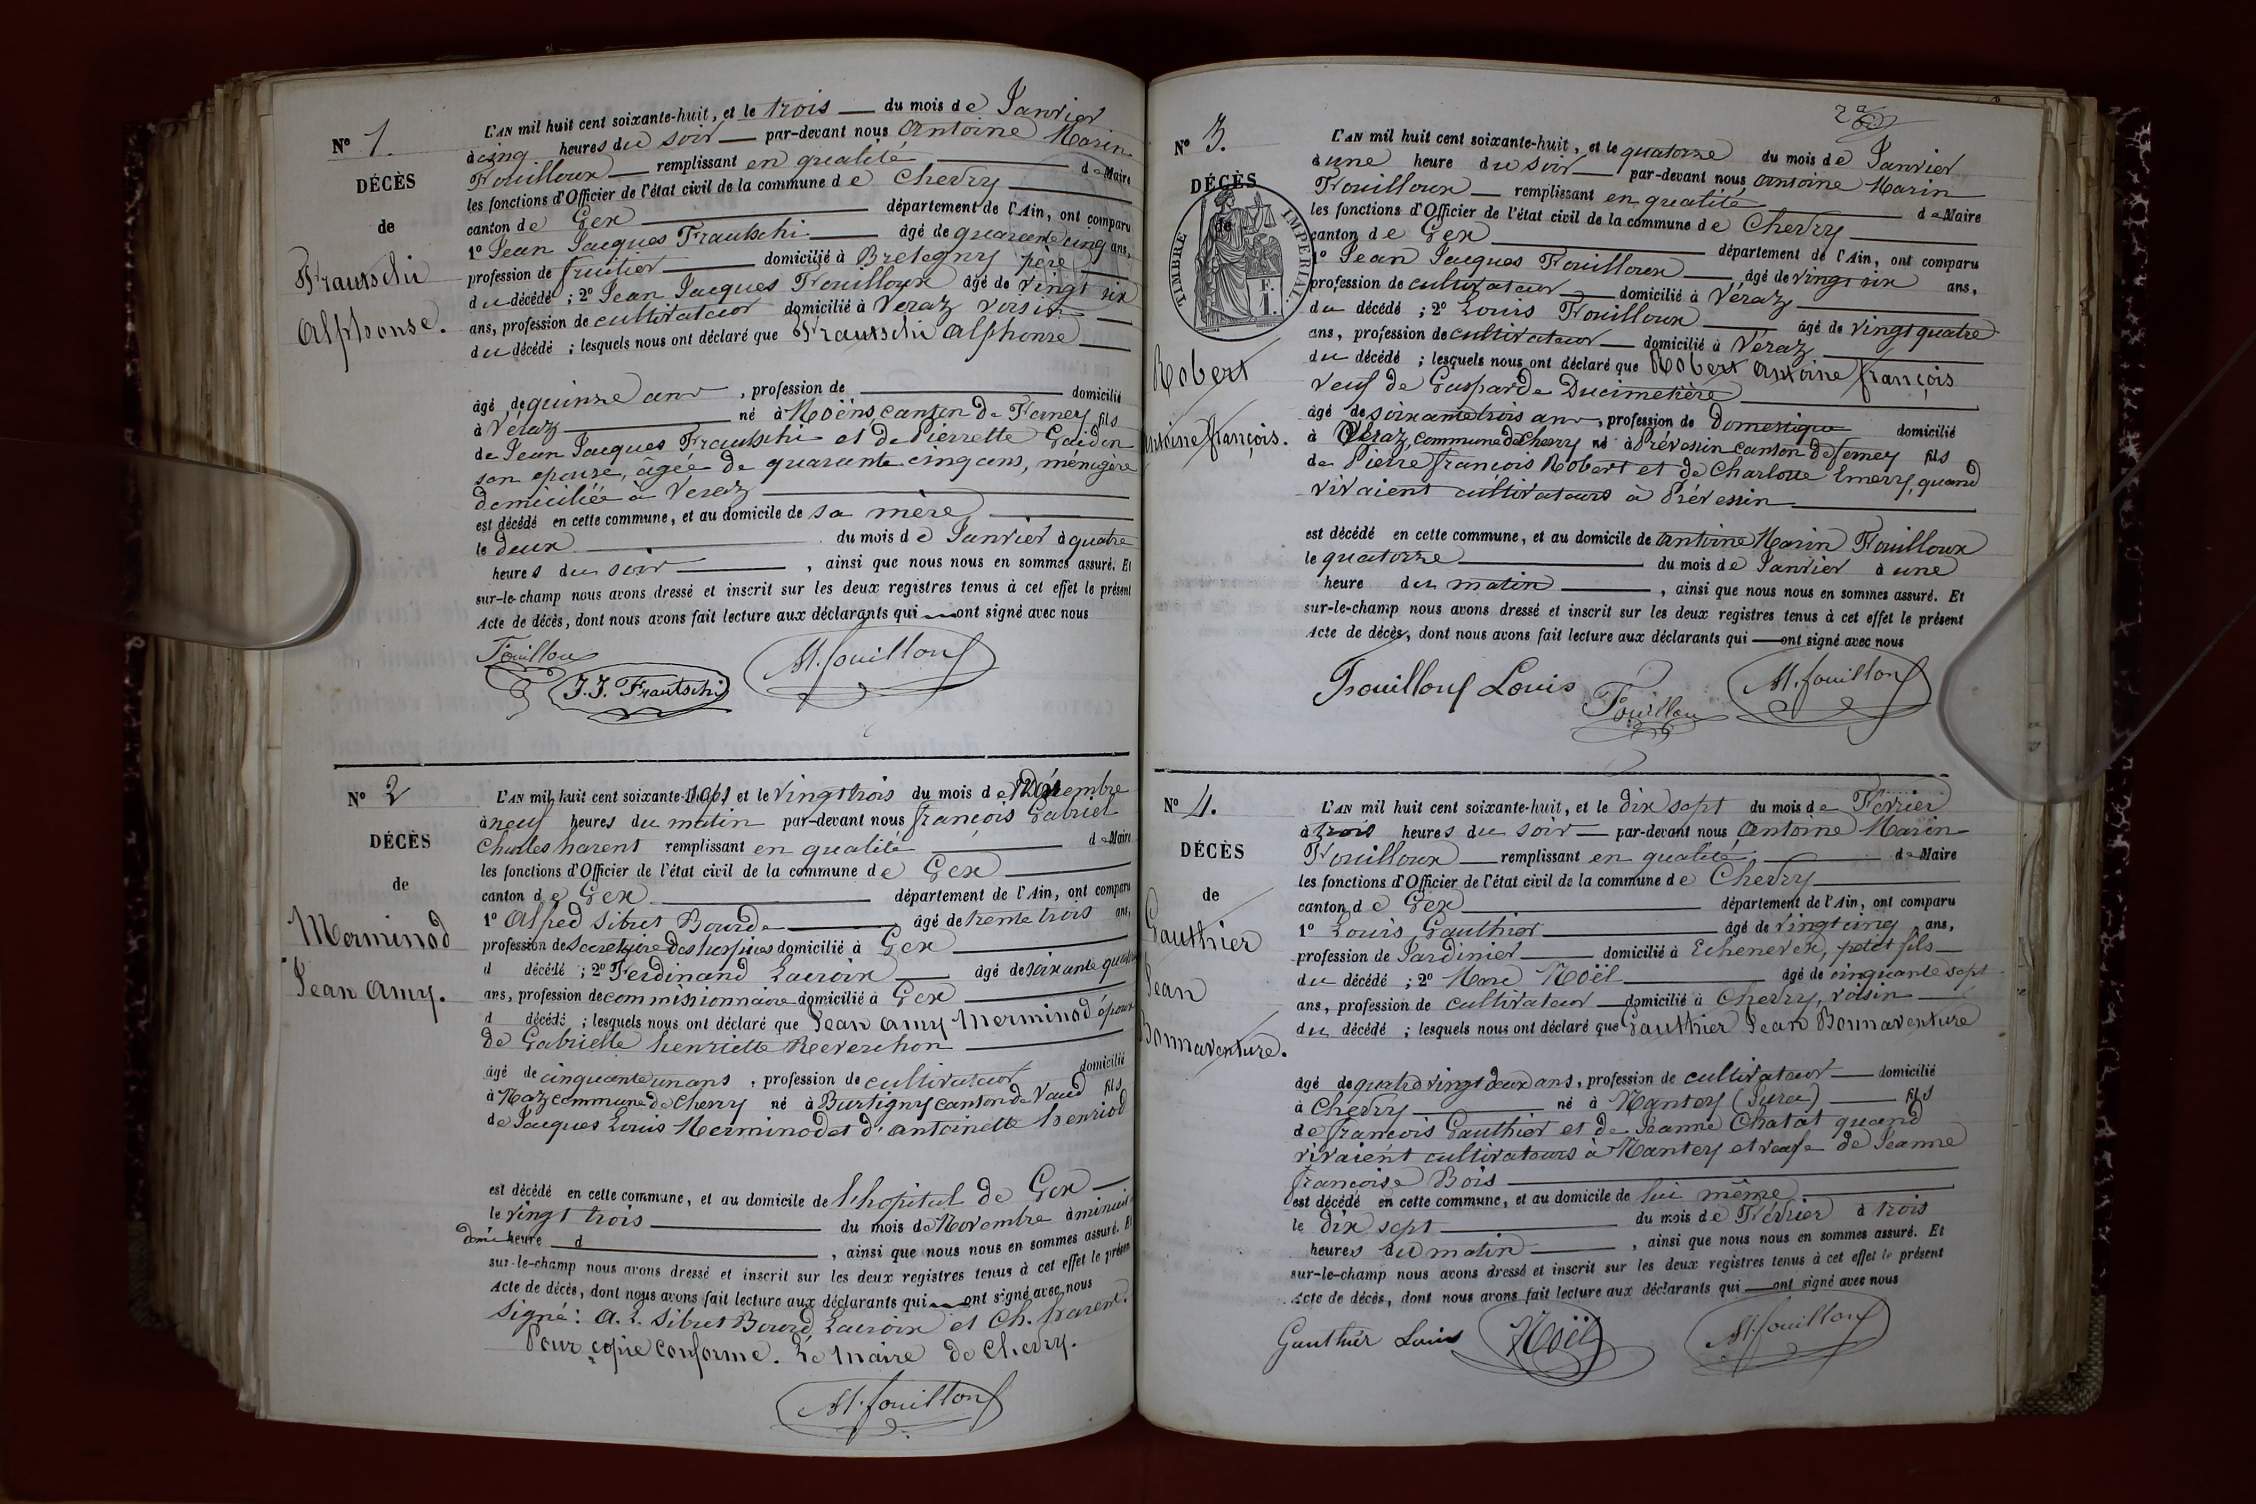 Nº 1.
DÉCÈS
de
Frautschi
Alphonse.
L'AN mil huit cent soixante-huit, et le trois du mois de Janvier
à cinq heures du soir par-devant nous Antoine Marin
Fouilloux remplissant en qualité de Maire
les fonctions d'Officier de l'état civil de la commune de Chevry
canton de Gex département de l'Ain, ont comparu
1º Jean Jacques Frautschi âgé de quarante cinq ans,
profession de fruitier domicilié à Bretegny père
du décédé ; 2º Jean Jacques Fouilloux âgé de vingt six
ans, profession de cultivateur domicilié à Veraz voisin
du décédé ; lesquels nous ont déclaré que Frautschi Alphonse
âgé de quinze ans , profession de domicilié
à Véraz né à Moëns canton de Ferney fils
de Jean Jacques Frautschi et de Pierrette Gaidon
son epouse, âgée de quarante cinq ans, ménagère
domiciliée à Veraz
est décédé en cette commune, et au domicile de sa mère
le deux du mois de Janvier à quatre
heures du soir , ainsi que nous nous en sommes assuré. Et
sur-le-champ nous avons dressé et inscrit sur les deux registres tenus à cet effet le présent
Acte de décès, dont nous avons fait lecture aux déclarants qui ont signé avec nous
Fouilloux
J.J. Frautschi
M. fouilloux
Nº 2
DÉCÈS
de
Merminod
Jean Amy.
L'AN mil huit cent soixante-sept et le vingt trois du mois de Novembre
à neuf heures du matin par-devant nous françois Gabriel
Charles harent remplissant en qualité de Maire
les fonctions d'Officier de l'état civil de la commune de Gex
canton de Gex département de l'Ain, ont comparu
1º Alfred Sibut Bourde âgé de trente trois ans,
profession de Secretaire des hospices domicilié à Gex
d décédé ; 2º Ferdinand Lacroix âgé de soixante quatre
ans, profession de commissionnaire domicilié à Gex
d décédé ; lesquels nous ont déclaré que Jean Amy Merminod époux
de Gabrielle henriette Reverchon
âgé de cinquante un ans , profession de cultivateur domicilié
à Naz commune de Chevry né à Burtigny canton de Vaud fils
de Jacques Louis Merminod et d'Antoinette henriod
est décédé en cette commune, et au domicile de l'hopital de Gex
le vingt trois du mois de Novembre à minuit
demi heure d , ainsi que nous nous en sommes assuré. Et
sur-le-champ nous avons dressé et inscrit sur les deux registres tenus à cet effet le présent
Acte de décès, dont nous avons fait lecture aux déclarants qui ont signé avec nous
Signé : A. L. Sibut Bourd, Lacroix et Ch. harent.
Pour copie conforme. Le Maire de Chevry.
M. fouilloux
Nº 3.
DÉCÈS
de
TIMBRE IMPERIAL.
F.
1.
Robert
Antoine françois.
L'AN mil huit cent soixante-huit, et le quatorze du mois de Janvier
à une heure du soir par-devant nous Antoine Marin
Fouilloux remplissant en qualité de Maire
les fonctions d'Officier de l'état civil de la commune de Chevry
canton de Gex département de l'Ain, ont comparu
1º Jean Jacques Fouilloux âgé de vingt six ans,
profession de cultivateur domicilié à Véraz
du décédé ; 2º Louis Fouilloux âgé de vingt quatre
ans, profession de cultivateur domicilié à Veraz
du décédé ; lesquels nous ont déclaré que Robert Antoine françois
veuf de Gasparde Ducimetière
âgé de soixante trois ans, profession de Domestique domicilié
à Véraz, commune de Chevry né à Prévessin canton de ferney fils
de Pierre françois Robert et de Charlotte Emery, quand
vivaient cultivateurs à Prévessin
est décédé en cette commune, et au domicile de Antoine Marin Fouilloux
le quatorze du mois de Janvier à une
heure du matin , ainsi que nous nous en sommes assuré. Et
sur-le-champ nous avons dressé et inscrit sur les deux registres tenus à cet effet le présent
Acte de décès, dont nous avons fait lecture aux déclarants qui ont signé avec nous
Fouilloux Louis
Fouilloux
M. fouilloux
Nº 4.
DÉCÈS
de
Gauthier
Jean
Bonnaventure.
L'AN mil huit cent soixante-huit, et le dix sept du mois de Fevrier
à trois heures du soir par-devant nous Antoine Marin
Fouilloux remplissant en qualité de Maire
les fonctions d'Officier de l'état civil de la commune de Chevry
canton de Gex département de l'Ain, ont comparu
1º Louis Gauthier âgé de vingt cinq ans,
profession de Jardinier domicilié à Echenevex, petit fils
du décédé ; 2º Noël âgé de cinquante sept
ans, profession de cultivateur domicilié à Chevry, voisin
du décédé ; lesquels nous ont déclaré que Gauthier Jean Bonnaventure
âgé de quatre vingt deux ans, profession de cultivateur domicilié
à Chevry né à Nantey (Jura) fils
de françois Gauthier et de Jeanne Chatat quand
vivaient cultivateurs à Nantey et veuf de Jeanne
françoise Bois
est décédé en cette commune, et au domicile de lui même
le dix sept du mois de Février à trois
heures du matin , ainsi que nous nous en sommes assuré. Et
sur-le-champ nous avons dressé et inscrit sur les deux registres tenus à cet effet le présent
Acte de décès, dont nous avons fait lecture aux déclarants qui ont signé avec nous
Gauthier Louis
Noël
M. fouilloux